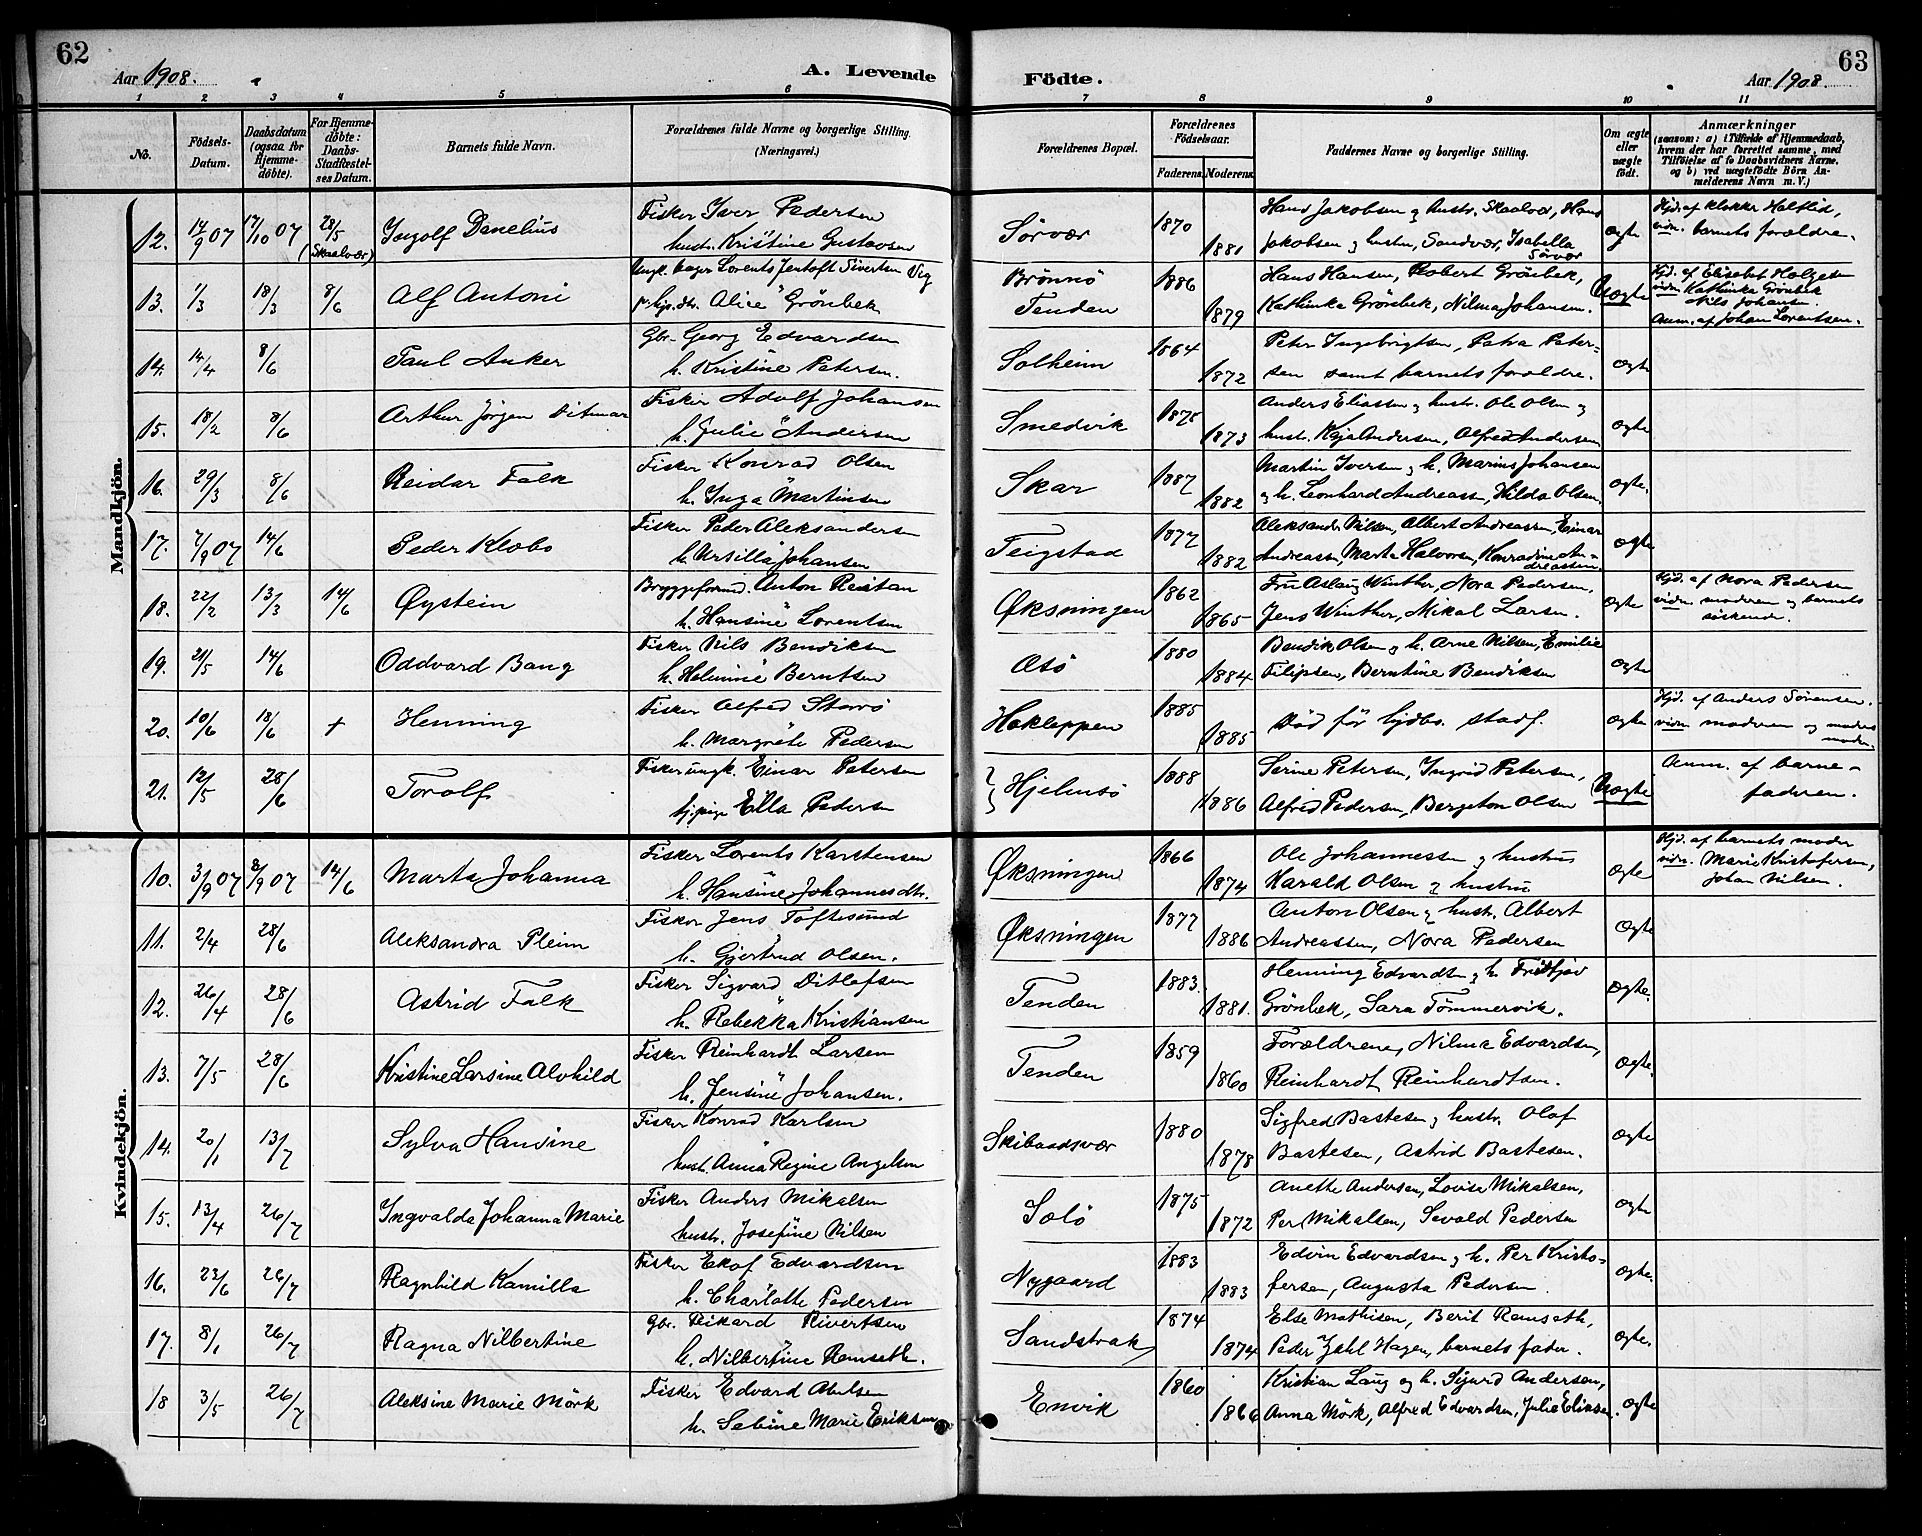 62
Aar 1908.
A. Levende
Födte.
Aar 1908.
63
1 2 3 4 5 6 7 8 9 10 11
No.
Födsels-Datum.
Daabsdatum (ogsaa for Hjemmedöbte).
For Hjemmedöbte: Daabs-Stadfæstelses Datum.
Barnets fulde Navn.
Forældrenes fulde Navne og borgerlige Stilling. (Næringsvei.)
Forældrenes Bopæl.
Forældrenes Födselsaar.
Faderens. Moderens.
Faddernes Navne og borgerlige Stilling.
Om ægte eller uægte födt.
Anmærkninger
(saasom: a) i Tilfælde af Hjemmedaab, hvem der har forrettet samme, med Tilföielse af to Daabsvidners Navne, og b) ved uægtefödte Börn Anmelderens Navn m. V.)
Mandkjön.
12. 14/9 07 17/10 07 28/5 (Skaalvær) Ingolf Danelius
Fisker Iver Pedersen
hustr. Kristine Gustavsen
Sørvær 1870 1881
Hans Jakobsen og hustr. Skaalvær, Hans
Jakobsen og hustru, Sandvær, Isabella
Sørvær
ægte
Hjd. af klokker Haltlid,
vidn. barnets forældre.
13. 1/3 18/3 8/6 Alf Antoni
Ungk. bager Lorents Jentoft Sivertsen Vig
Alice Grönbek
Brønnö
Tenden 1886 1879
Hans Hansen, Robert Grönbek,
Kathinka Grönbek, Nilma Johansen.
Uægte
Hjd. af Elisabet Holgersen
vidn. Kathinka Grönbek
Nils Johansen.
Anm. af Johan Lorentsen.
14. 14/4 8/6 Paul Anker
Gbr. Georg Edvardsen
h. Kristine Petersen.
Solheim 1864 1872
Peter Ingebrigtsen, Petra Peter-
sen samt barnets forældre.
ægte
15. 18/2 8/6 Arthur Jörgen Ditmar
Fisker Adolf Johansen
h. Julie Andersen
Smedvik 1875 1873
Anders Eliassen og hustr. Ole Olsen og
hustr. Kaja Andersen, Alfred Andersen
ægte
16. 29/3 8/6 Reidar Falk
Fisker Konrad Olsen
h. Inga Martinsen
Skar 1887 1882
Martin Iversen og h. Marius Johansen
og h. Leonhard Andreass., Hilda Olsen.
ægte.
17. 7/9 07 14/6 Peder Klobo
Fisker Peder Aleksanders.
h. Ursilla Johansen
Teigstad 1877 1882
Aleksander Nilsen, Albert Andreassen, Einar
Andreassen, Marta Halvorsen, Konradine An-
dreassen.
ægte
18. 22/2 13/3 14/6 Øystein
Bryggeformd. Anton Reitan
h. Hansine Lorentsen
Øksningen 1862 1865
Fru Aslaug Winther, Nora Pedersen,
Jens Winther, Mikal Larsen.
ægte
Hjd. af Nora Pedersen
vidn. moderen og barnets
söskende.
19. 21/5 14/6 Oddvard Bang
Fisker Nils Bendiksen
h. Helmine Berntsen
Asö 1880 1884
Bendik Olsen og h. Arne Nilsen, Emilie
Filipsen, Berntine Bendiksen
ægte
20. 10/6 18/6 + Henning
Fisker Alfred Storø
h. Margrete Pedersen
Hakleppen 1885 1885
död för hjdbs. stadf.
ægte
Hjd. af Anders Sörensen.
vidn. moderen og moders
moder.
21. 12/5 28/6 Torolf
Fisker ungk. Einar Petersen
Ella Pedersen
Hjelmsö 1888 1886
Serine Petersen, Ingrid Petersen,
Alfred Pedersen, Bergeton Olsen
Uægte
Anm. af barne-
faderen.
Kvindekjön.
10. 3/9 07 8/9 07 14/6 Marta Johanna
Fisker Lorents Karstensen
h. Hansine Johannesdtr.
Øksningen 1866 1874
Ole Johannessen og hustru
Harald Olsen og hustru
ægte
Hjd. af barnets moder
vidn. Marie Kristofersen,
Johan Nilsen.
11. 2/4 28/6 Aleksandra Pleim
Fisker Jens Toftesund
h. Gjertrud Olsen.
Øksningen 1877 1886
Anton Olsen og hustr. Albert
Andreassen, Nora Pedersen
ægte
12. 26/4 28/6 Astrid Falk
Fisker Sigvard Ditlefsen
h. Rebekka Kristiansen
Tenden 1883. 1881.
Henning Edvardsen og h. Fridtjov
Grönbek, Sara Tömmervik.
ægte.
13. 7/5 28/6 Kristine Larsine Alvhild
Fisker Reinhardt Larsen
h. Jensine Johansen.
Tenden 1859 1860
Forældrene, Nilma Edvardsen,
Reinhardt Reinhardtsen.
ægte.
14. 20/1 13/7 Sylva Hansine
Fisker Konrad Karlsen
hust. Anna Regine Angelsen
Skibaadsvær 1880 1878
Sigfred Bastesen og hustr. Olaf
Bastesen, Astrid Bastesen.
ægte
15. 13/4 26/7 Ingvalda Johanna Marie
Fisker Anders Mikalsen
hustr. Josefine Nilsen
Solö 1875 1872
Anette Andersen, Lovise Mikalsen,
Per Mikalsen, Sevald Pedersen
ægte
16. 23/6 26/7 Ragnhild Kamilla
Fisker Ekof Edvardsen
h. Charlotte Pedersen
Nygaard 1883 1883
Edvin Edvardsen og h. Per Kristo-
fersen, Augusta Pedersen.
ægte.
17. 8/1 26/7 Ragna Nilbertine
Gbr. Rikard Rivertsen
h. Nilbertine Remseth.
Sandstrak 1874 1874
Else Mathisen, Berit Remseth,
Peder Zahl Hagen, barnets fader.
ægte.
18 3/5 26/7 Aleksine Marie Mörk
Fisker Edvard Abelsen
h. Sebine Marie Eriksen
Envik 1860 1866
Kristian Laug og h. Sigurd Andersen,
Anna Mörk, Alfred Edvardsen, Julie Eliassen.
ægte